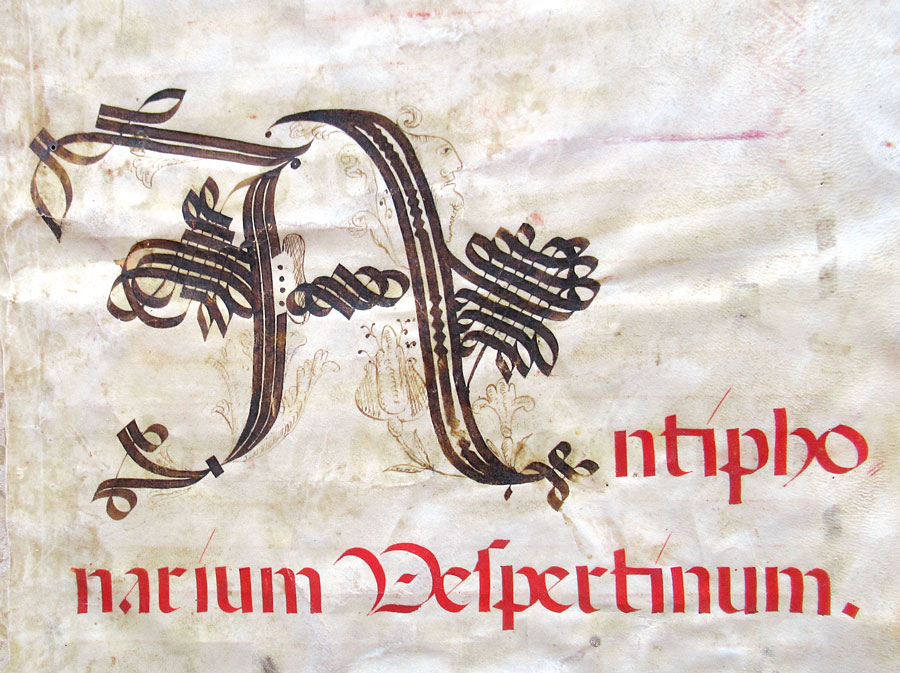 Antipho
narium Veſpertinum.